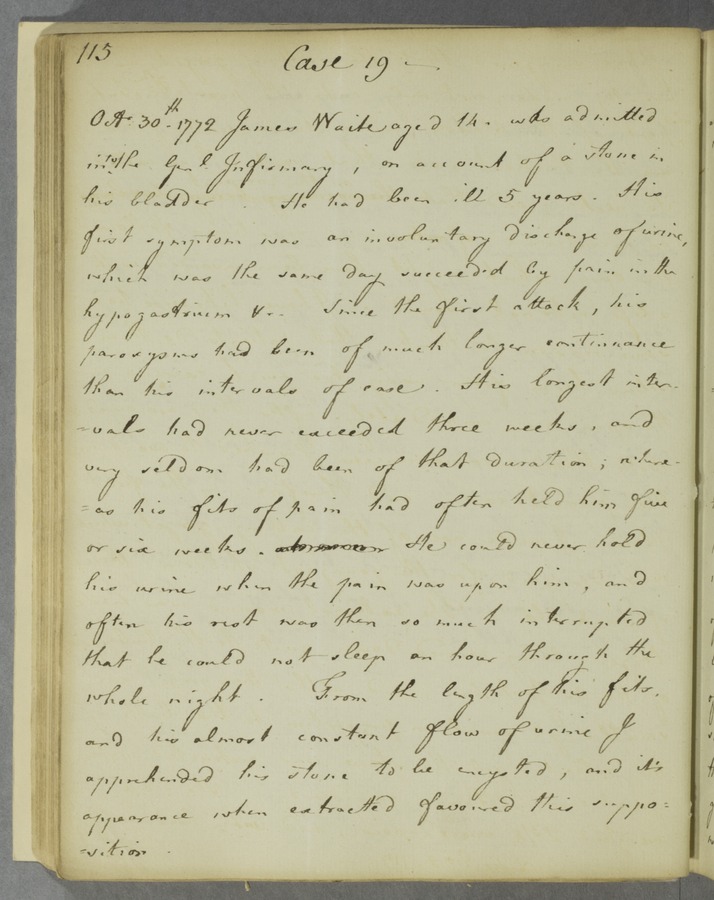 115
Case 19 —
Octr. 30th. 1772 James Waite aged 14. was admitted
into the Genl. Infirmary, on account of a stone in
his bladder. He had been ill 5 years. His
first symptom was an involuntary discharge of urine,
which was the same day succeeded by pain in the
hypogastrium &c. Since the first attack, his
paroxysms had been of much longer continuance
than his intervals of ease. His longest inter-
=vals had never exceeded three weeks, and
very seldom had been of that duration; where-
=as his fits of pain had often held him five
or six weeks. He could never hold
his urine when the pain was upon him, and
often his rest was then so much interrupted
that he could not sleep an hour through the
whole night. From the length of his fits,
and his almost constant flow of urine I
apprehended his stone to be encysted, and it's
appearance when extracted favoured this suppo=
=sition.